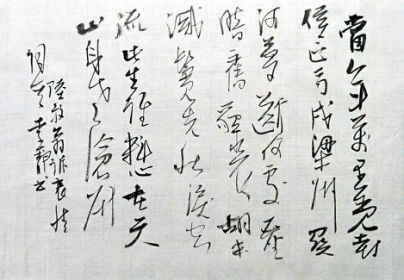 當年萬里覓封
侯匹馬戍梁州關
河夢斷何處塵
暗舊貂裘胡未
滅鬢先秋淚空
流此生誰料心在天
山身老滄州
陸放翁訴衷情
書